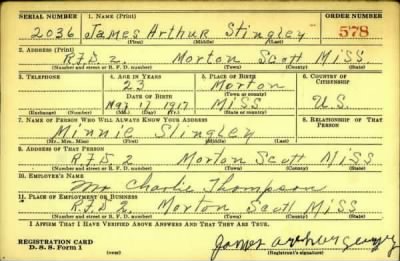 SERIAL NUMBER 1. NAME (Print) ORDER NUMBER
2036 James Arthur Stingley 578
(First) (Middle) (Last)
2. ADDRESS (Print)
R.F.D 2. Morton Scott Miss
(Number and street or R. F. D. number) (Town) (County) (State)
3. TELEPHONE 4. AGE IN YEARS 5. PLACE OF BIRTH 6. COUNTRY OF CITIZENSHIP
23 Morton
DATE OF BIRTH (Town or county)
Mar 17 1917 Miss U.S.
(Exchange) (Number) (Mo.) (Day) (Yr.) (State or country)
7. NAME OF PERSON WHO WILL ALWAYS KNOW YOUR ADDRESS 8. RELATIONSHIP OF THAT PERSON
Minnie Stingley
(Mr., Mrs., Miss) (First) (Middle) (Last)
9. ADDRESS OF THAT PERSON
R.F.D 2 Morton Scott Miss
(Number and street or R. F. D. number) (Town) (County) (State)
10. EMPLOYER'S NAME
Mr Charlie Thompson
11. PLACE OF EMPLOYMENT OR BUSINESS
R.F.D 2. Morton Scott Miss
(Number and street or R. F. D. number) (Town) (County) (State)
I AFFIRM THAT I HAVE VERIFIED ABOVE ANSWERS AND THAT THEY ARE TRUE.
REGISTRATION CARD
D. S. S. Form 1 (over) (Registrant's signature)
James